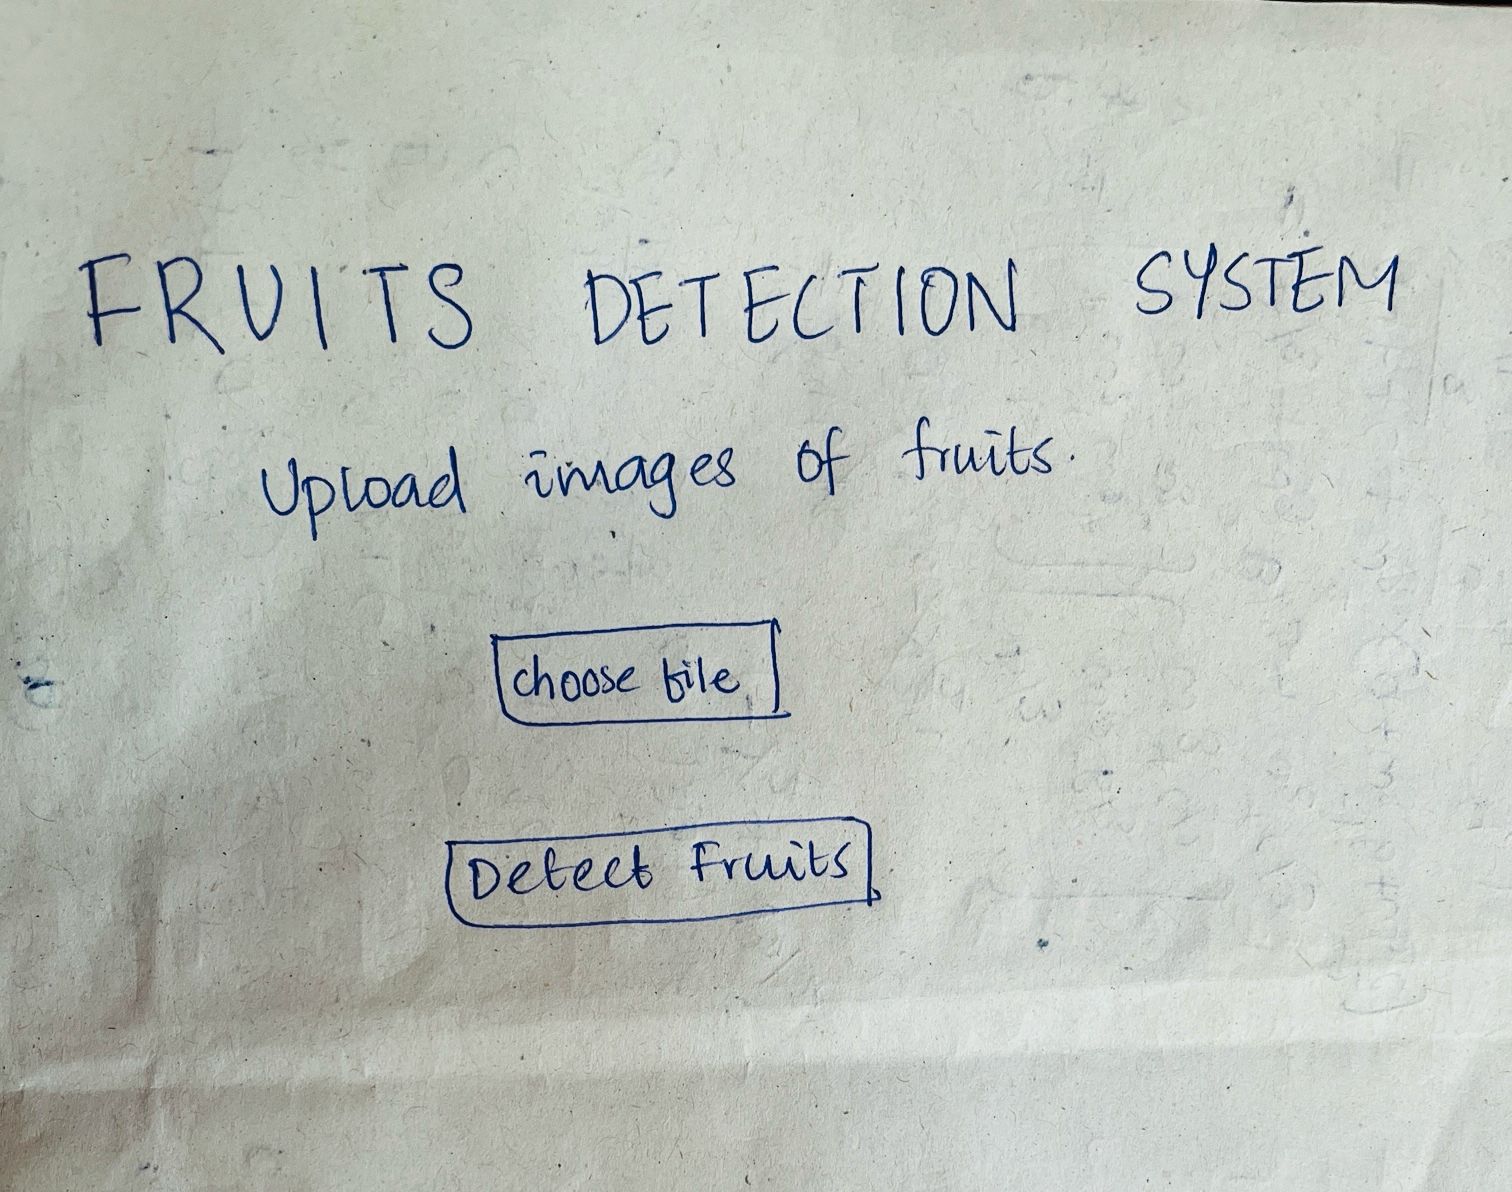 FRUITS DETECTION SYSTEM
Upload images of fruits.
choose file
Detect Fruits